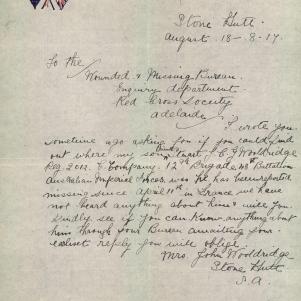 Stone Hutt.
August. 18-8-17.
To the
Wounded & Missing Bureau.
Enquiry department.
Red Cross Society
Adelaide
I wrote you
sometime ago asking you if you could find
out where my son
Reg 2012. Company. 12th Brigade 48th Battalion
Australian Imperial Forces. was he has been reported
missing since April 11th in France we have
not heard anything about him & will you
kindly see if you can know anything about
him through your Bureau awaiting your
earliest reply you will oblige
Mrs. John Wooldridge
Stone Hutt
S.A.